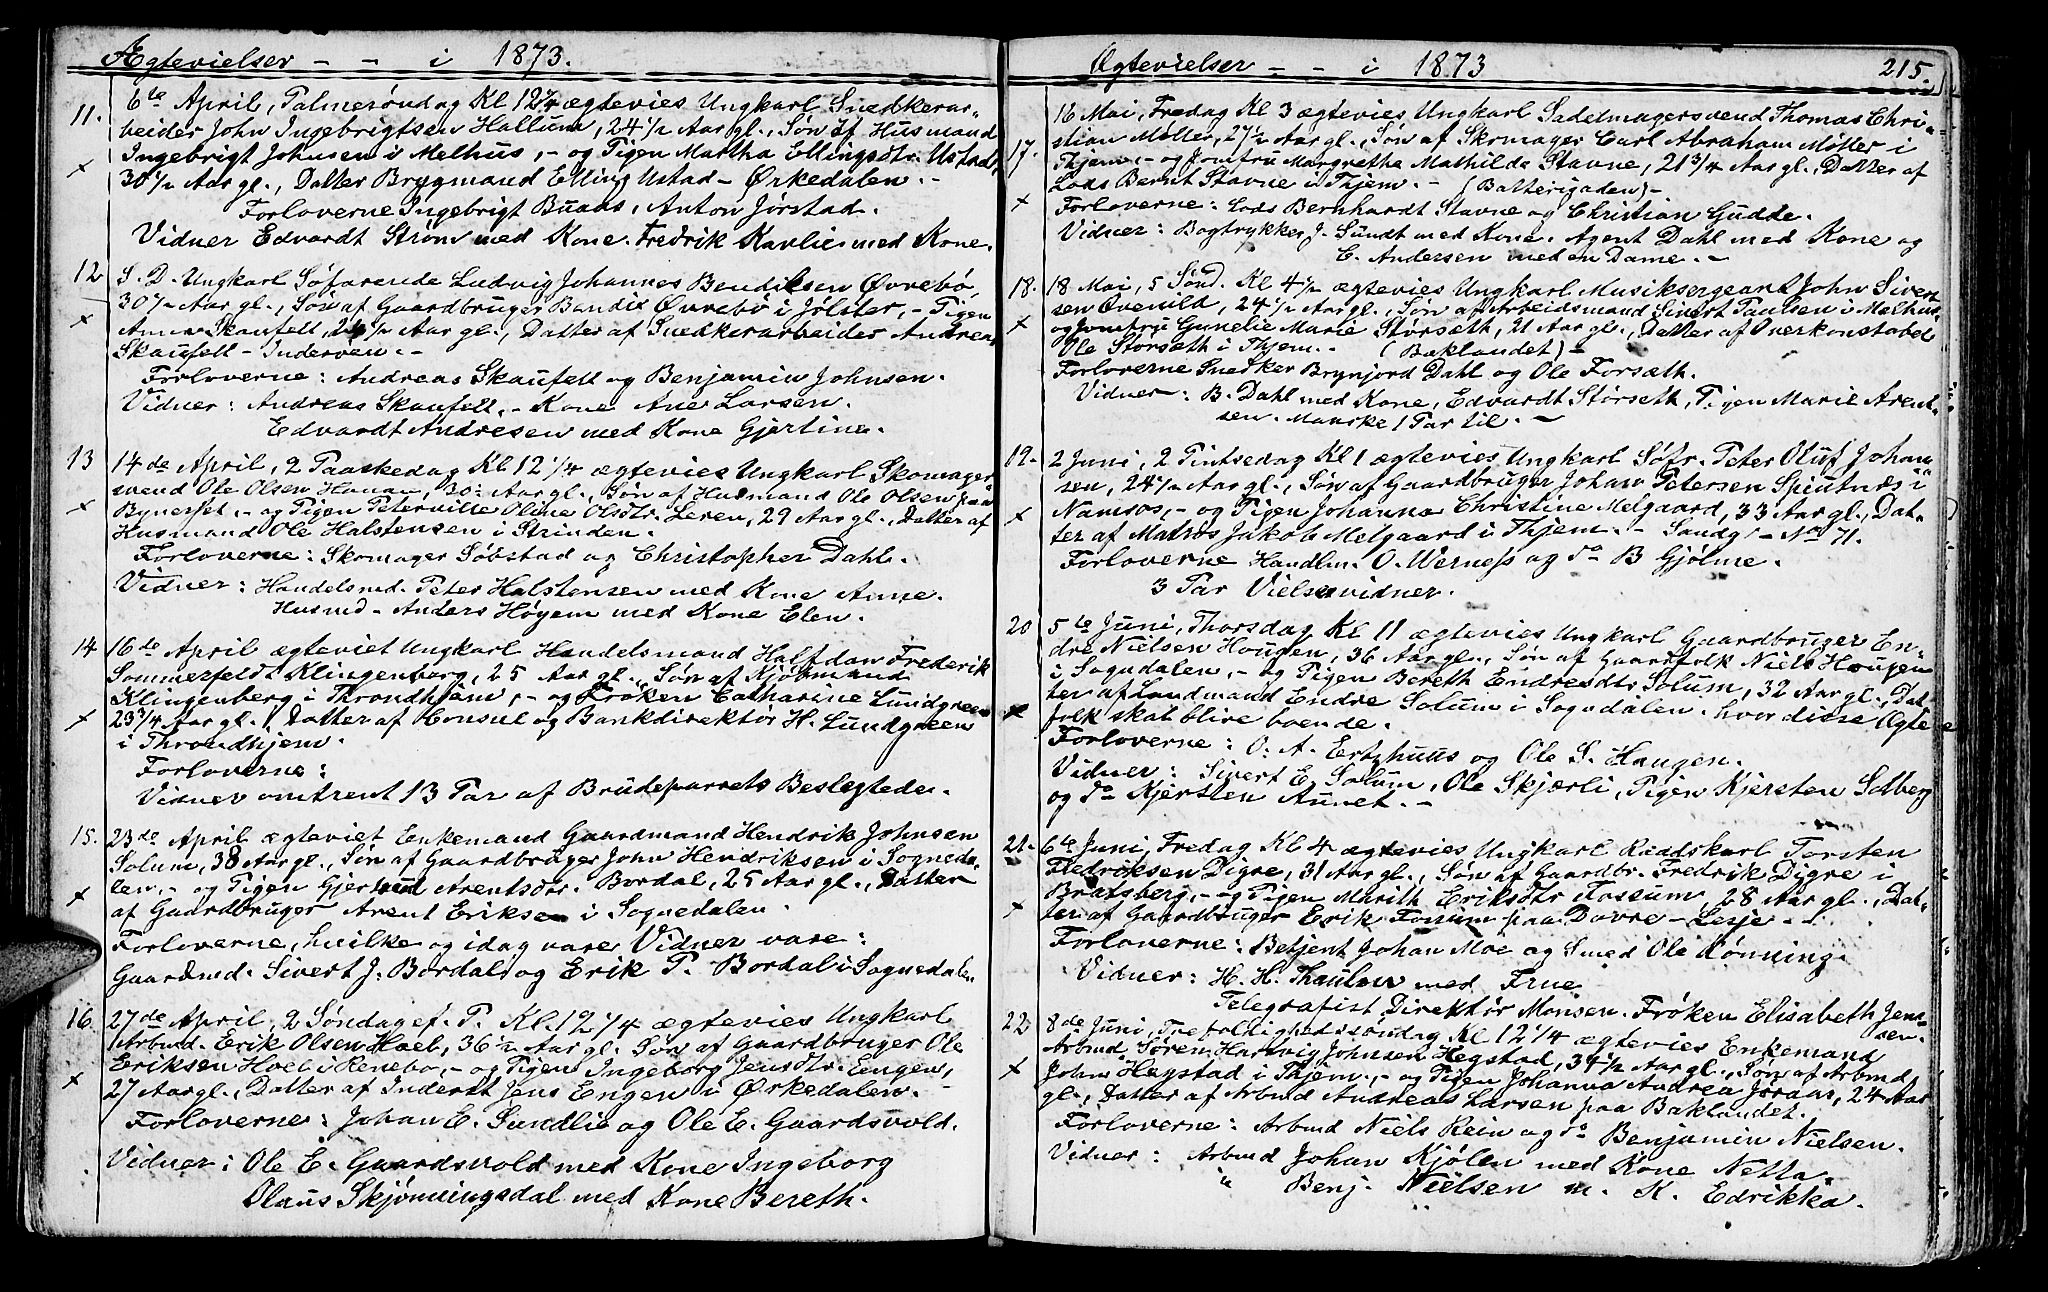 Ægtevielser - - i 1873.
11. 6te April, Palmesøndag Kl 12¼ ægtevies Ungkarl Snedkerar-
beider John Ingebrigtsen Hallum, 24½ Aar gl., Søn af Husmand
Ingebrigt Johnsen i Melhus, - og Pigen Martha Ellingsdtr. Ustad,
30½ Aar gl., Datter Brygmand Elling Ustad - Ørkedalen. -
Forloverne Ingebrigt Buaas, Anton Jørstad.
Vidner Edvardt Strøm med Kone. Fredrik Kavlie med Kone.
12 S. D. Ungkarl Søfarende Ludvig Johannes Bendiksen Øvrebø,
30½ Aar gl., Søn af Gaardbruger Bendix Øvrebø i Jølster, - Pigen
Anna Skaufelt, Aar gl., Datter af Snedkerarbeider Andreas
Skaufelt - Inderøen. -
Forloverne: Andreas Skaufelt og Benjamin Johnsen.
Vidner: Andreas Skaufelt, - Kone Ane Larsen.
Edvardt Andresen med Kone Gjertine.
13 14de April, 2 Paaskedag Kl 12¼ ægtevies Ungkarl Skomager-
svend Ole Olsen 30 Aar gl., Søn af Husmand Ole Olsen paa
Bynesset, - og Pigen Peterville Oline Olsdtr. Leren, 29 Aar gl., Datter af
Husmand Ole Halstensen i Strinden.
Forloverne: Skomager Søbstad og Christopher Dahl.
Vidner: Handelsmd. Peter Halstensen med Kone Anne.
Husmd - Anders Høyem med Kone Elen.
14 16de April ægteviet Ungkarl Handelsmand Halfdan Frederik
Sommerfeldt Klingenberg, 25 Aar gl., Søn af Kjøbmand
Klingenberg i Throndhjem, - og Frøken Catharine Lundgreen
23¾ Aar gl., Datter af Consul og Bankdirektør H. Lundgreen
i Throndhjem.
Forloverne:
Vidner omtrent 13 Par af Brudeparrets Beslegtede.
15. 23de April ægteviet Enkemand Gaardmand Hendrik Johnsen
Solum, 38 Aar gl., Søn af Gaardbruger John Hendriksen i Sogneda-
len, - og Pigen Gjertrud Arentsdtr. Bordal, 25 Aar gl., Datter
af Gaardbruger Arent Eriksen i Sognedalen.
Forloverne, hvilke og idag vare Vidner vare:
Gaardmd. Sivert J. Bordal og Erik P. Bordal i Sognedalen.
16. 27de April, 2 Søndag ef. P. Kl. 12¼ ægtevies Ungkarl
Arbmd. Erik Olsen Hoel, 36½ Aar gl., Søn af Gaardbruger Ole
Eriksen Hoel i Renebo, - og Pigen Ingeborg Jensdtr. Engen,
27 Aar gl., Datter af Inderst Jens Engen i Ørkedalen. -
Forloverne: Johan E. Sundlie og Ole E. Gaardsvold.
Vidner: Ole E. Gaardsvold med Kone Ingeborg
Olaus Skjønningsdal med Kone Bereth.
Ægtevielser - - i 1873 215.
17. 16 Mai, Fredag Kl 3 ægtevies Ungkarl Sadelmagersvend Thomas Chri-
stian Møller, 27½ Aar gl., Søn af Skomager Carl Abraham Møller i
Thjem, - og Jomfru Margrethe Mathilde Stavne, 21¾ Aar gl., Datter af
Lods Bernt Stavne i Thjem. - (Batterigaden) -
Forloverne: Lods Bernhardt Stavne og Christian Gudde.
Vidner: Bogtrykker J. Sundt med Kone. Agent Dahl med Kone og
E. Andersen med en Dame. -
18. 18 Mai, 5 Sønd. Kl 4½ ægtevies Ungkarl Musiksergeant John Sivert-
sen Øvenild, 24½ Aar gl., Søn af Arbeidsmand Sivert Paulsen i Melhus,
og Jomfru Gunelie Marie Størseth, 21 Aar gl., Datter af Overkonstabel
Ole Størseth i Thjem. - (Baklandet) -
Forloverne Snedker Brynjord Dahl og Ole Forsæth.
Vidner: B. Dahl med Kone, Edvardt Størseth, Pigen Marie Arent-
sen. Manske 1 Par til. -
19. 2 Juni, 2 Pintsedag Kl 1 ægtevies Ungkarl Søfr. Peter Oluf Johan-
sen, 24½ Aar gl., Søn af Gaardbruger Johan Petersen Spiutnæs i
Namsos, - og Pigen Johanna Christine Melgaard, 33 Aar gl., Dat-
ter af Matros Jakob Melgaard i Thjem. - Sandg. - No 71.
Forloverne Handlm. O. Werness og do B Gjølme.
3 Par Vielsevidner.
20 5te Juni, Thorsdag Kl 11 ægtevies Ungkarl Gaardbruger En-
dre Nielsen Hougen, 36 Aar gl., Søn af Gaardfolk Niels Hougen
i Sogndalen, - og Pigen Bereth Endresdtr Solum, 32 Aar gl., Dat-
ter af Landmand Endre Solum i Sogndalen. hvor disse Ægte
folk skal blive boende.
Forloverne: O. A. Ertzhuus og Ole S. Haugen.
Vidner: Sivert E. Solum, Ole Skjærli, Pigen Kjersten Solberg
og do Kjersten Aunet. -
21. 6te Juni, Fredag Kl 4 ægtevies Ungkarl Raadskarl Torsten
Fredriksen Digre, 31 Aar gl., Søn af Gaardbr. Fredrik Digre i
Bratsberg, - og Pigen Marith Eriksdtr Fossum, 28 Aar gl., Dat-
ter af Gaardbruger Erik Fossum paa Dovre - Lesje -
Forloverne: Betjent Johan Moe og Smed Ole Rønning.
Vidner: H. H. Thaulow med Frue
Telegrafist Direktør Monsen. Frøken Elisabeth Jens-
sen.
22 8de Juni, Trefoldighedssøndag Kl 12¼ ægtevies Enkemand
Arbmd Søren Hartvig Johnsen Hegstad, 34½ Aar gl., Søn af Arbmd
John Hegstad i Thjem, - og Pigen Johanna Andrea Jøraas, 24 Aar
gl., Datter af Arbmd Andreas Larsen paa Baklandet.
Forloverne: Arbmd Niels Rein og do Benjamin Nielsen.
Vidner: Arbmd Johan Kjølen med Kone Netta.
" Benj. Nielsen m. K. Edrikka.